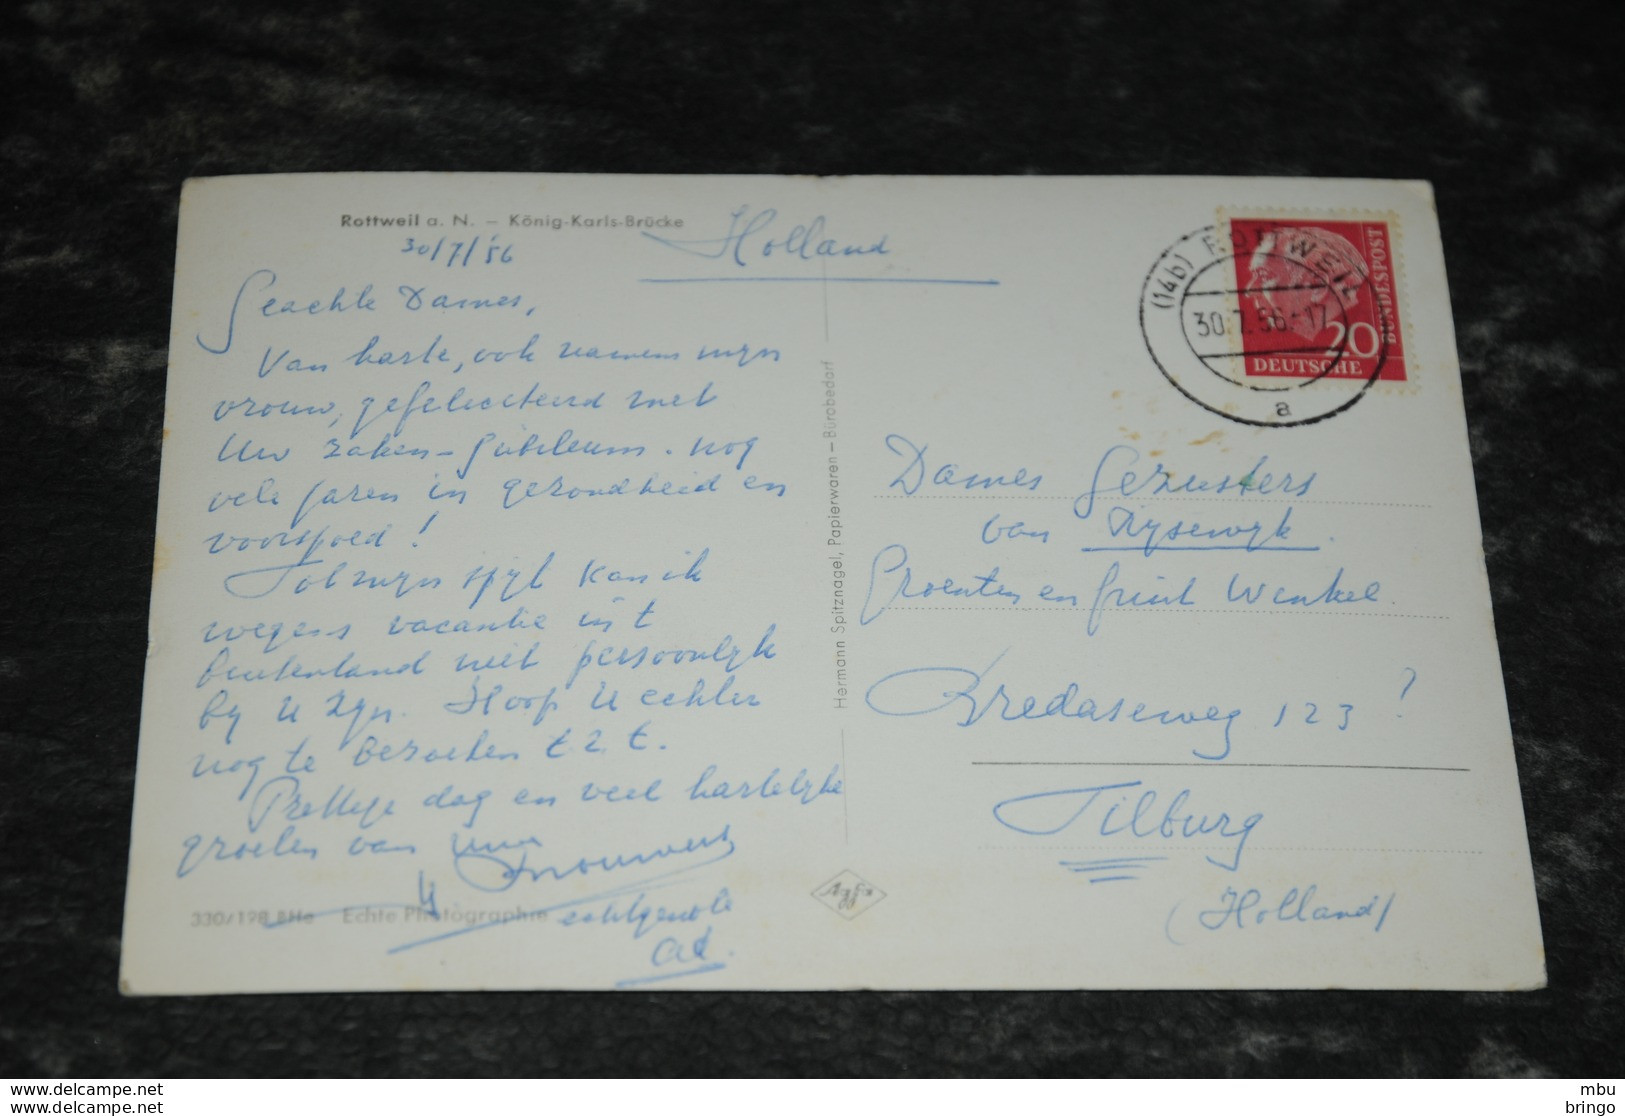 Rottweil a. N. – König-Karls-Brücke
30/7/56
Holland
Geachte Dames,
Van harte, ook namens mijn
vrouw, gefeliciteerd met
Uw zaken-Jubileum. nog
vele jaren in gezondheid en
voorspoed!
Tot mijn spijt kan ik
wegens vacantie in 't
buitenland niet persoonlijk
bij U zijn. Hoop U echter
nog te bezoeken t.z.t.
Prettige dag en veel hartelijke
groeten van
echtgenote
330/198 BHe Echte Photographie
Hermann Spitznagel, Papierwaren – Bürobedarf
(14b) ROTTWEIL
30.7.56.-17
a
20
DEUTSCHE
BUNDESPOST
Dames Gezusters
van Rijsewijk.
Groenten en fruit Winkel.
Bredaseweg 123?
Tilburg
(Holland)
delcampe.net
mbu
bringo